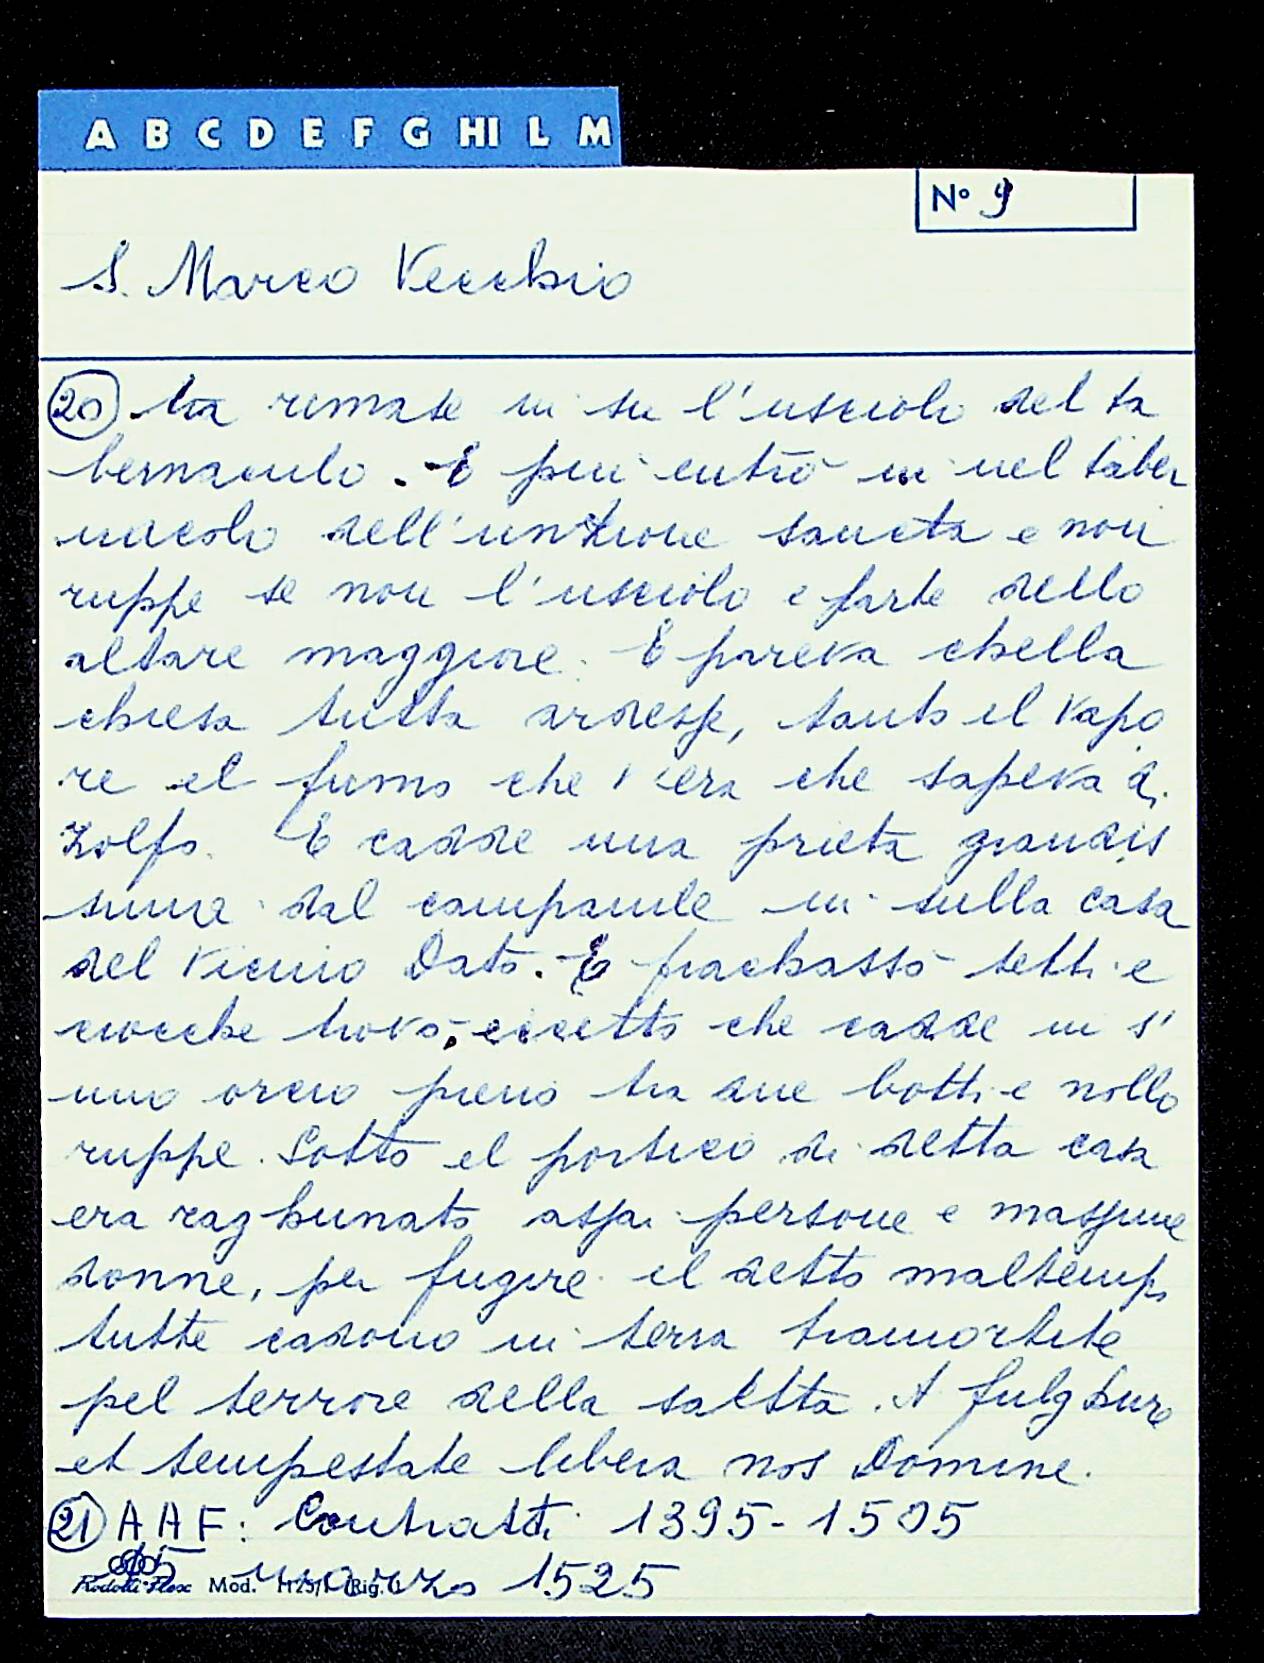 A B C D E F G HI L M
N° 9
S. Marco Vecchio
20 ta rimase in su l'usciolo del ta
bernaculo. E più entrò in nel taber
nacolo dell'unzione sancta e non
ruppe se non l'usciolo e parte dello
altare maggiore. E pareva chella
chiesa tutta ardesse, tanto el vapo
re el fumo che v'era che sapeva di
zolfo. E cadde una prieta grandis
sima dal campanile in sulla casa
del vicino Dato. E frachassò tetti e
ciocche trovò, eccetto che cadde in s'
uno orcio pieno tra due botti e nollo
ruppe. Sotto el portico di detta casa
era raghunato assai persone e massime
donne, per fugire il detto maltempo
tutte cadono in terra tramortite
pel terrore della saetta. A fulghure
et tempestate libera nos Domine.
21 AAF: Contratti 1395-1505
15 marzo 1525
Mod.